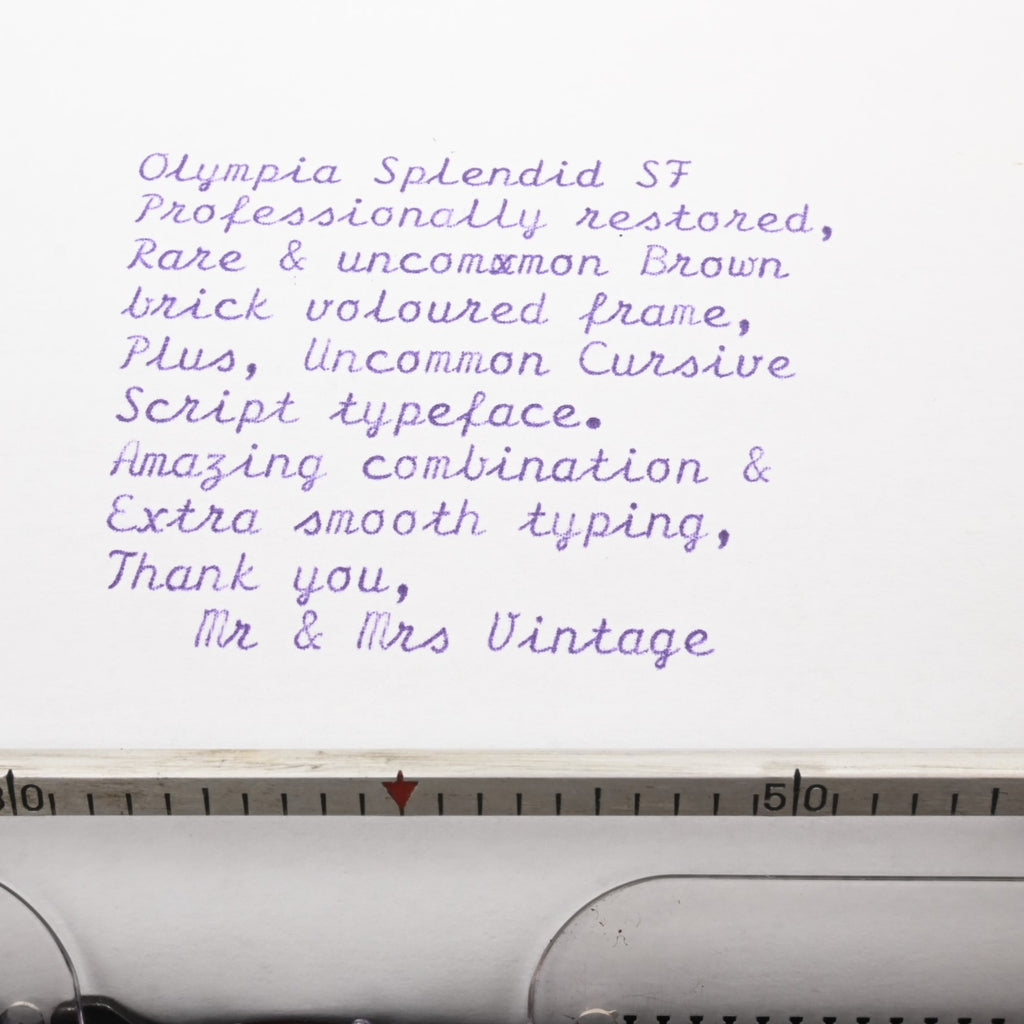 Olympia Splendid SF
Professionally restored,
Rare & uncomxmon Brown
brick voloured frame,
Plus, Uncommon Cursive
Script typeface.
Amazing combination &
Extra smooth typing,
Thank you,
Mr & Mrs Vintage
30 50